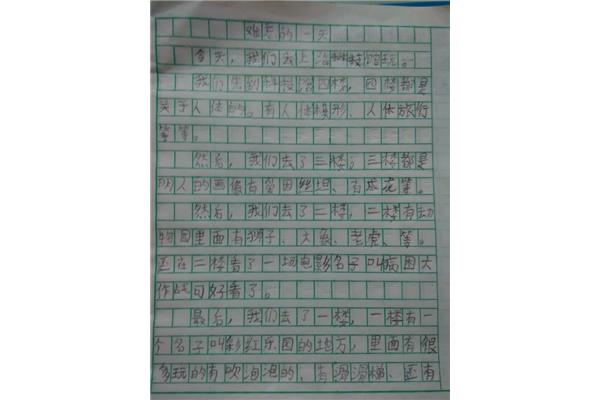 难忘的一天
今天，我们去上海科技馆玩。
我们先到科技馆四楼，四楼都是
关于人体的。有人体模形、人体旅行
等等。
然后，我们去了三楼，三楼都是
名人的画像有爱因丝坦、有求花等。
然后，我们去了二楼，二楼有动
物园里面有狮子、大象、老虎、等。
还在二楼看了一场电影名子叫病困大
作战可好看了。
最后，我们去了一楼，一楼有一
个名子叫彩虹乐园的地方，里面有很
多玩的有吹泡泡的、有滑滑梯、还有